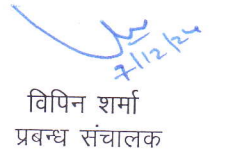 7/12/24
विपिन शर्मा
प्रबन्ध संचालक